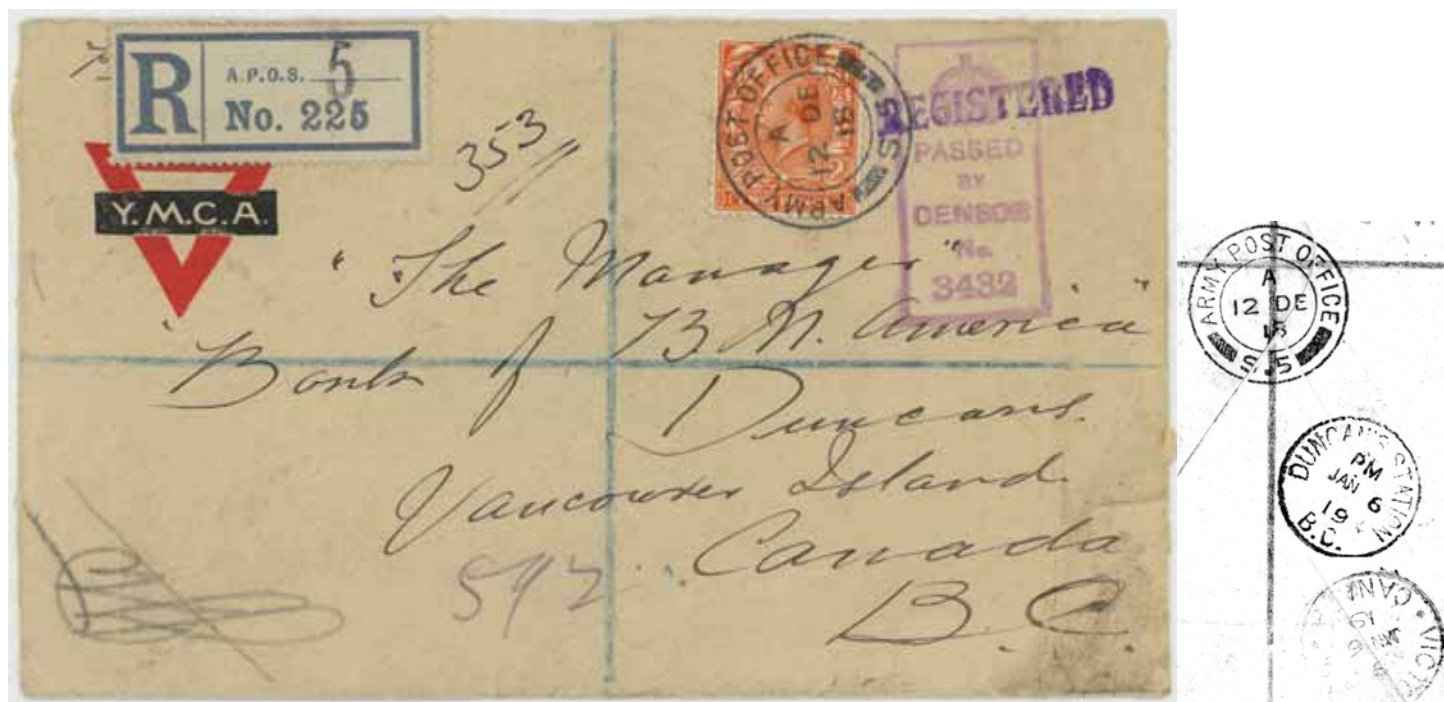 R
A.P.O.S. 5
No. 225
Y.M.C.A.
353
ARMY POST OFFICE
A
DE
12 18
S 5
REGISTERED
PASSED
BY
CENSOR
No.
3432
"The Manager"
"Bank of B. N. America"
Duncans.
Vancouver Island.
Canada
B.C.
592
ARMY POST OFFICE
A
12 DE
18
S.5
DUNCAN'S STATION
PM
JAN 6
19
B.C.
CANA